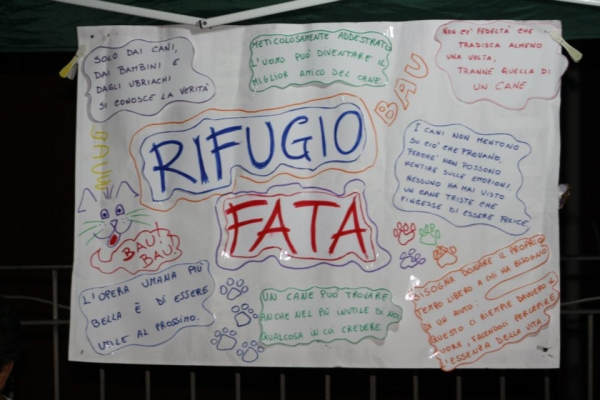 SOLO DAI CANI,
DAI BAMBINI E
DAGLI UBRIACHI
SI CONOSCE LA VERITÀ
METICOLOSAMENTE ADDESTRATO
L'UOMO PUÒ DIVENTARE IL
MIGLIOR AMICO DEL CANE
NON C'È FEDELTÀ CHE
TRADISCA ALMENO
UNA VOLTA,
TRANNE QUELLA DI
UN CANE
BAU
RIFUGIO
FATA
I CANI NON MENTONO
SU CIO' CHE PROVANO,
PERCHE' NON POSSONO
MENTIRE SULLE EMOZIONI.
NESSUNO HA MAI VISTO
UN CANE TRISTE CHE
FINGESSE DI ESSERE FELICE
BAU!
BAU!
L'OPERA UMANA PIÙ
BELLA È DI ESSERE
UTILE AL PROSSIMO.
UN CANE PUO' TROVARE
ANCHE NEL PIÙ INUTILE DI NOI
QUALCOSA IN CUI CREDERE
BISOGNA DONARE IL PROPRIO
TEMPO LIBERO A CHI HA BISOGNO
DI UN AIUTO:
QUESTO CI RIEMPIE DAVVERO IL
CUORE, FACENDOCI PERCEPIRE
L'ESSENZA DELLA VITA